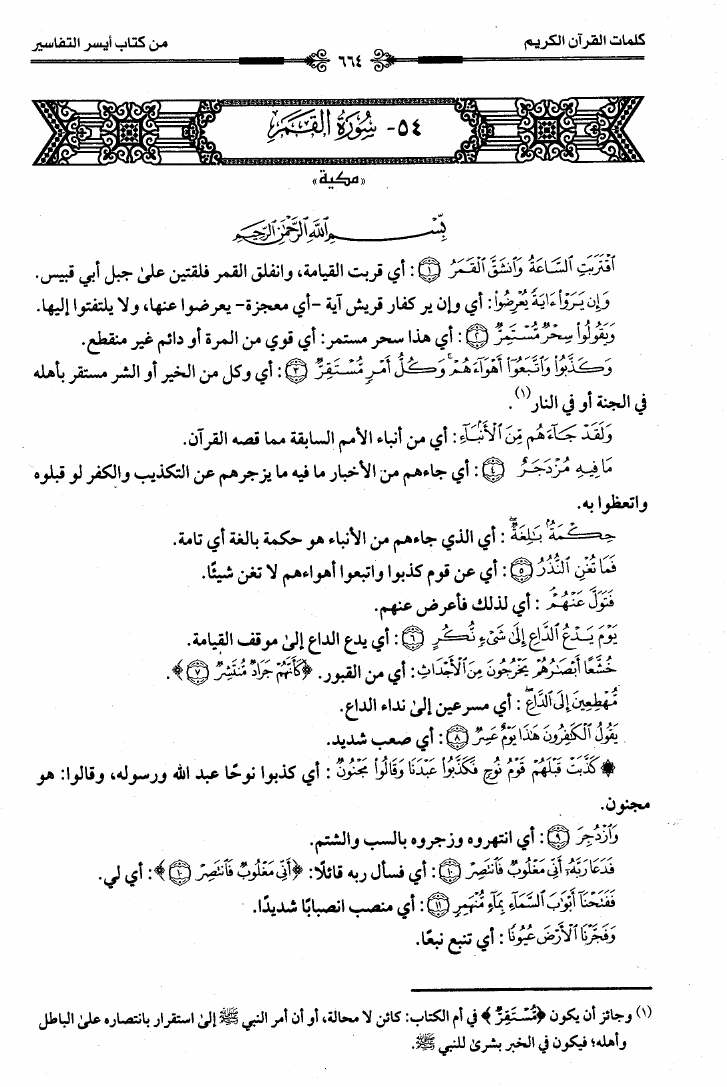 كلمات القرآن الكريم
من كتاب أيسر التفاسير
٦٦٤
٥٤- سُورَةُ القَمَر
«مكية»
بِسْمِ اللَّهِ الرَّحْمَٰنِ الرَّحِيمِ
ٱقْتَرَبَتِ ٱلسَّاعَةُ وَٱنشَقَّ ٱلْقَمَرُ ﴿١﴾: أي قربت القيامة، وانفلق القمر فلقتين علىٰ جبل أبي قبيس.
وَإِن يَرَوْا۟ ءَايَةً يُعْرِضُوا۟: أي وإن ير كفار قريش آية -أي معجزة- يعرضوا عنها، ولا يلتفتوا إليها.
وَيَقُولُوا۟ سِحْرٌ مُّسْتَمِرٌّ ﴿٢﴾: أي هذا سحر مستمر: أي قوي من المرة أو دائم غير منقطع.
وَكَذَّبُوا۟ وَٱتَّبَعُوٓا۟ أَهْوَآءَهُمْ ۚ وَكُلُّ أَمْرٍ مُّسْتَقِرٌّ ﴿٣﴾: أي وكل من الخير أو الشر مستقر بأهله
في الجنة أو في النار(١).
وَلَقَدْ جَآءَهُم مِّنَ ٱلْأَنۢبَآءِ: أي من أنباء الأمم السابقة مما قصه القرآن.
مَا فِيهِ مُزْدَجَرٌ ﴿٤﴾: أي جاءهم من الأخبار ما فيه ما يزجرهم عن التكذيب والكفر لو قبلوه
واتعظوا به.
حِكْمَةٌۢ بَٰلِغَةٌ ۖ: أي الذي جاءهم من الأنباء هو حكمة بالغة أي تامة.
فَمَا تُغْنِ ٱلنُّذُرُ ﴿٥﴾: أي عن قوم كذبوا واتبعوا أهواءهم لا تغن شيئًا.
فَتَوَلَّ عَنْهُمْ ۘ: أي لذلك فأعرض عنهم.
يَوْمَ يَدْعُ ٱلدَّاعِ إِلَىٰ شَىْءٍ نُّكُرٍ ﴿٦﴾: أي يدع الداع إلىٰ موقف القيامة.
خُشَّعًا أَبْصَٰرُهُمْ يَخْرُجُونَ مِنَ ٱلْأَجْدَاثِ: أي من القبور. ﴿كَأَنَّهُمْ جَرَادٌ مُّنتَشِرٌ ﴿٧﴾﴾.
مُّهْطِعِينَ إِلَى ٱلدَّاعِ ۖ: أي مسرعين إلىٰ نداء الداع.
يَقُولُ ٱلْكَٰفِرُونَ هَٰذَا يَوْمٌ عَسِرٌ ﴿٨﴾: أي صعب شديد.
۞ كَذَّبَتْ قَبْلَهُمْ قَوْمُ نُوحٍ فَكَذَّبُوا۟ عَبْدَنَا وَقَالُوا۟ مَجْنُونٌ: أي كذبوا نوحًا عبد الله ورسوله، وقالوا: هو
مجنون.
وَٱزْدُجِرَ ﴿٩﴾: أي انتهروه وزجروه بالسب والشتم.
فَدَعَا رَبَّهُۥٓ أَنِّى مَغْلُوبٌ فَٱنتَصِرْ ﴿١٠﴾: أي فسأل ربه قائلًا: ﴿أَنِّى مَغْلُوبٌ فَٱنتَصِرْ ﴿١٠﴾﴾: أي لي.
فَفَتَحْنَآ أَبْوَٰبَ ٱلسَّمَآءِ بِمَآءٍ مُّنْهَمِرٍ ﴿١١﴾: أي منصب انصبابًا شديدًا.
وَفَجَّرْنَا ٱلْأَرْضَ عُيُونًا: أي تنبع نبعًا.
(١) وجائز أن يكون ﴿مُّسْتَقِرٌّ﴾ في أم الكتاب: كائن لا محالة، أو أن أمر النبي ﷺ إلىٰ استقرار بانتصاره علىٰ الباطل
وأهله؛ فيكون في الخبر بشرىٰ للنبي ﷺ.